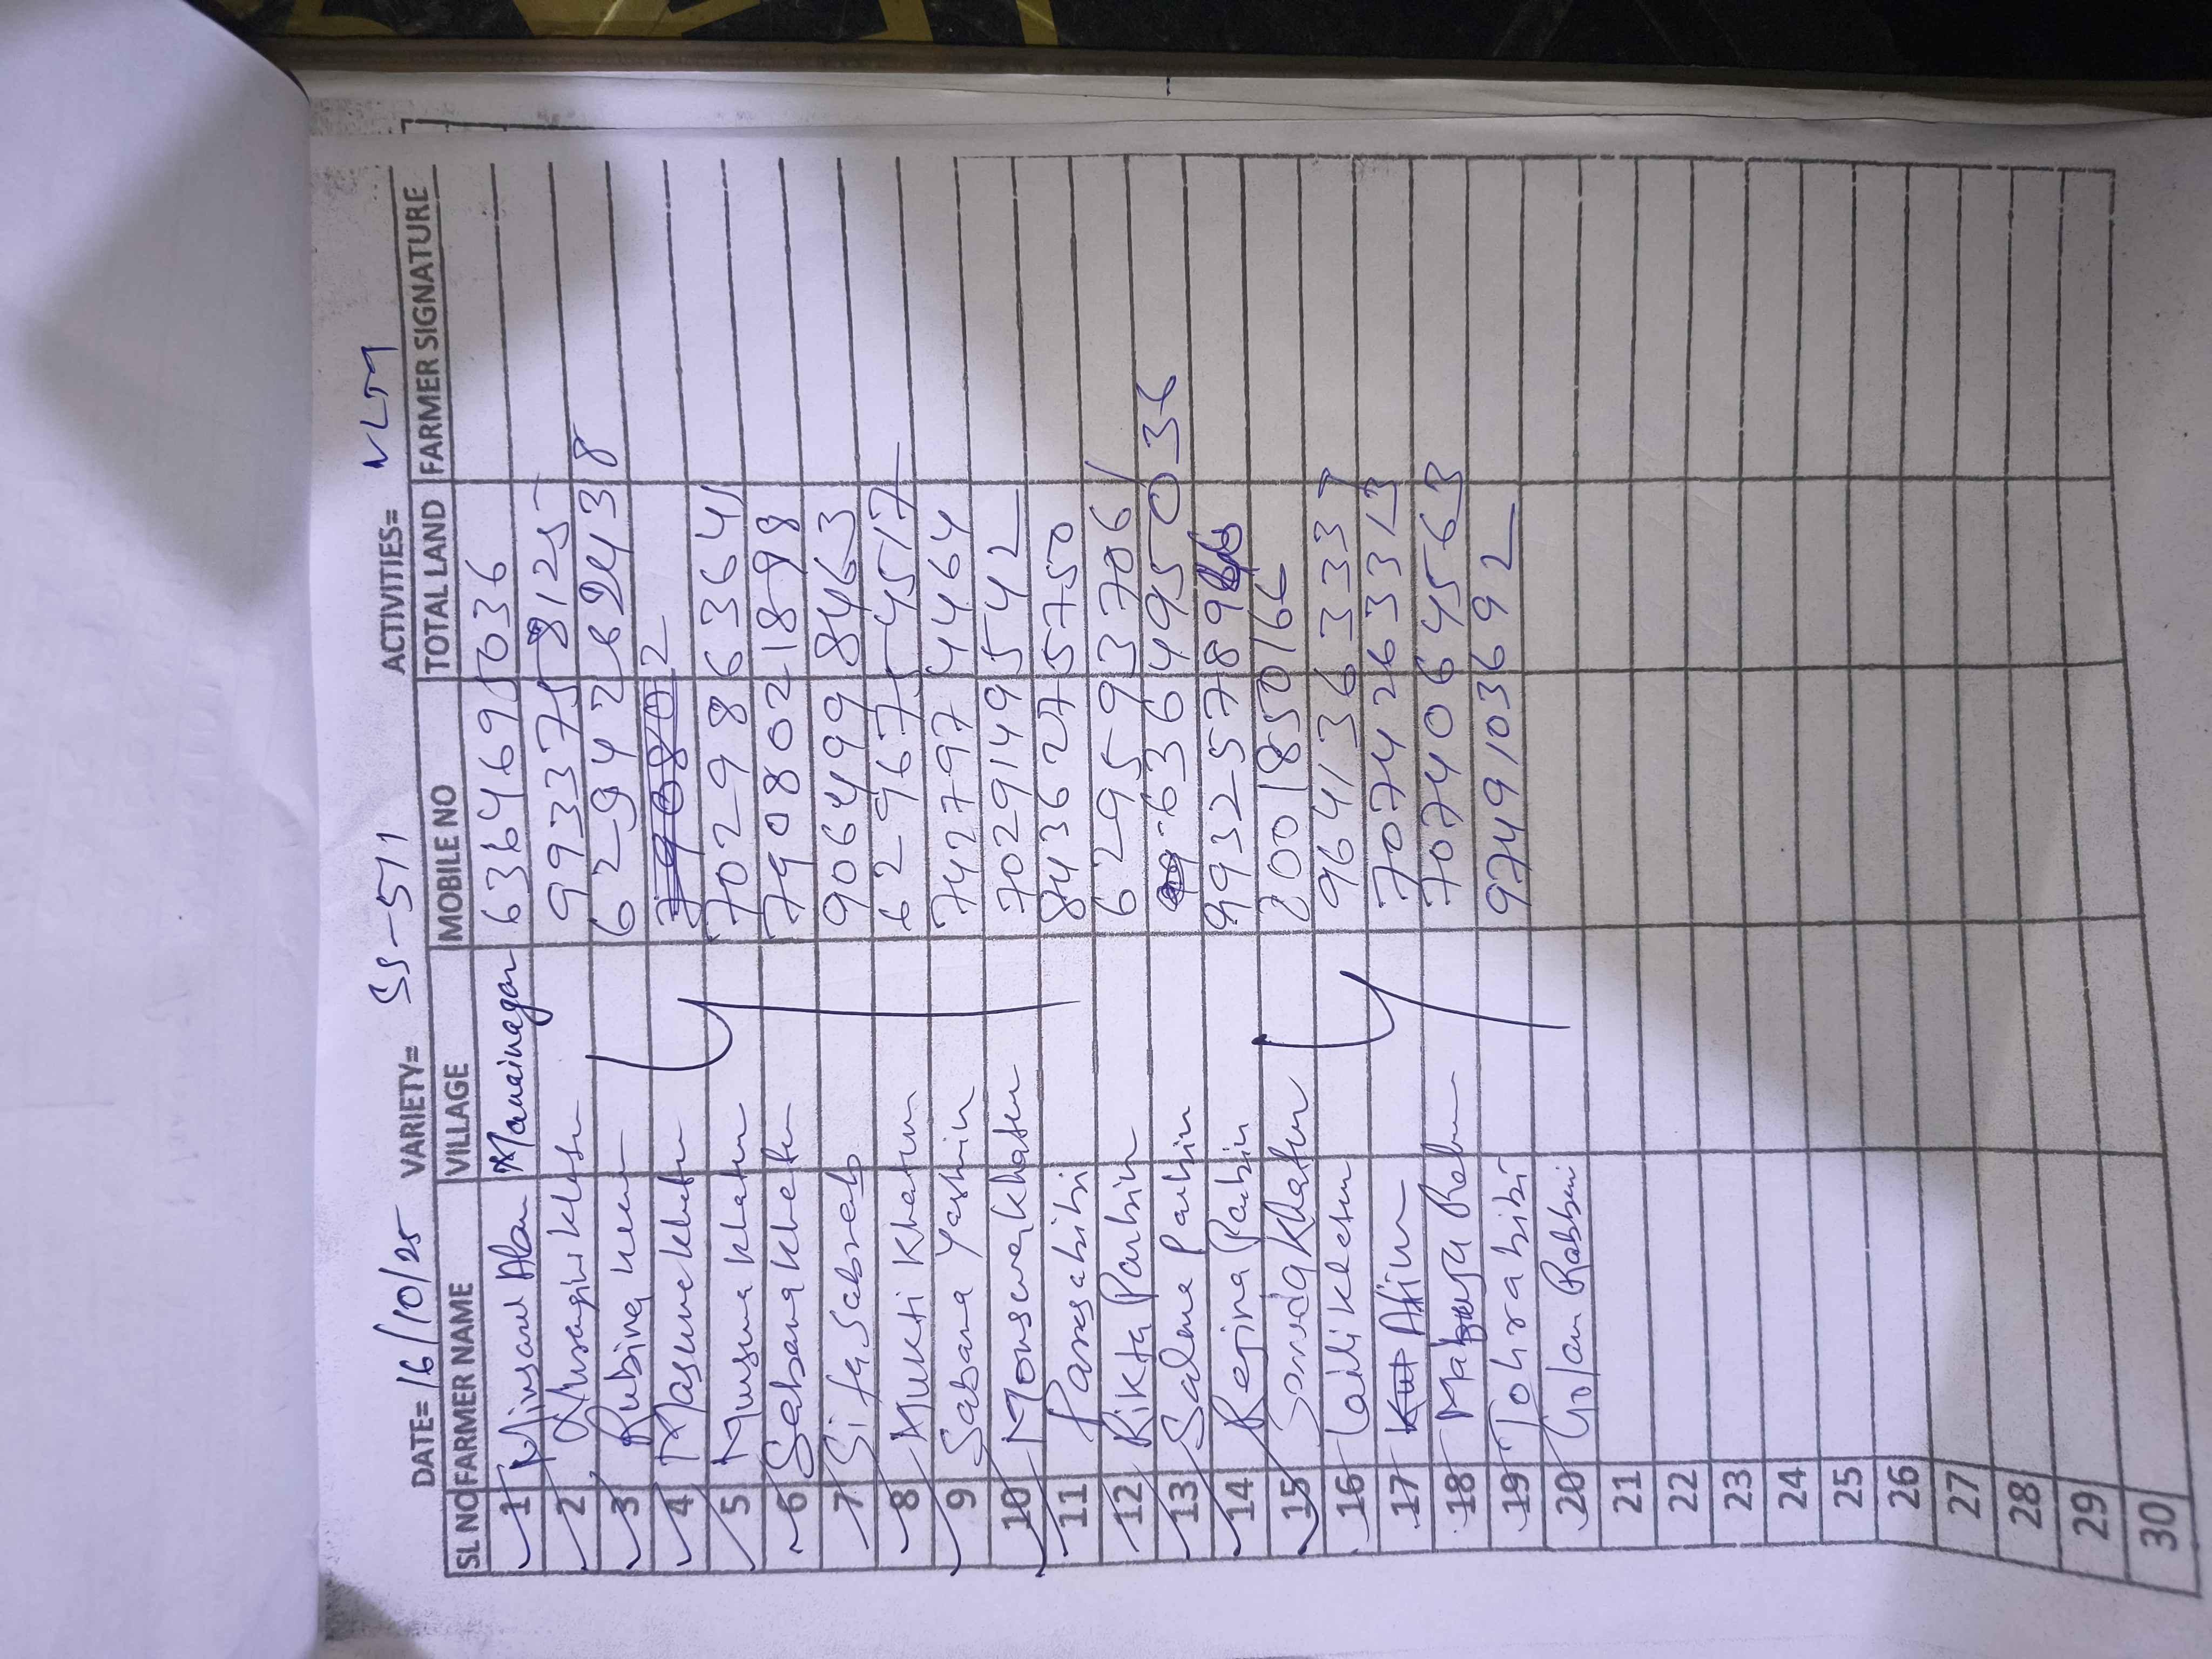 DATE= 16/10/25 VARIETY= SS-511 ACTIVITIES= NLM
SL NO FARMER NAME VILLAGE MOBILE NO TOTAL LAND FARMER SIGNATURE
1 Minsarul Alam 6364695036
2 9933758125
3 Rubina 6294262438
4 Masuma khatun
5 Mursuma khatun 7029863641
6 Sabana khatun 7908021898
7 Sifa Sabreb 9064998463
8 Mukti Khatun 6296754517
9 Sabana Yasmin 7427974464
10 Monsura khatun 7029149542
11 Paresabibi 8436275750
12 Rikta Parbin 6295937061
13 Salma Parbin 6364995036
14 Rejina Parbin
15 Khatun
16 Laili khatun 9641363337
17 7074263313
18 7074064563
19 Tohrabibi 9749103692
20 Golam Rabbani
21
22
23
24
25
26
27
28
29
30